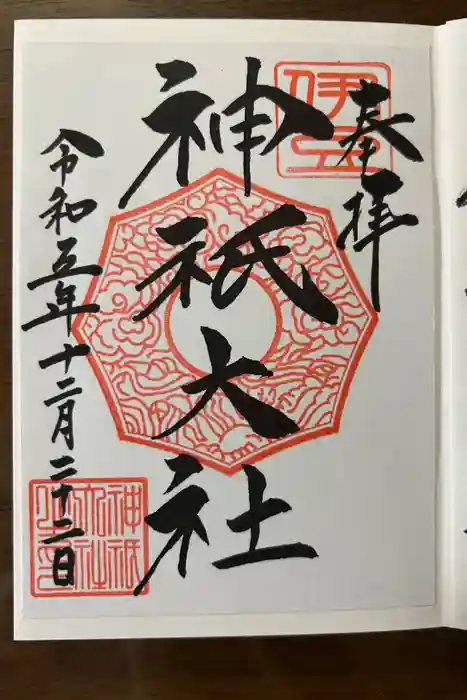 奉拝
伊豆
神祇大社
令和五年十二月二十二日
神祇
大社